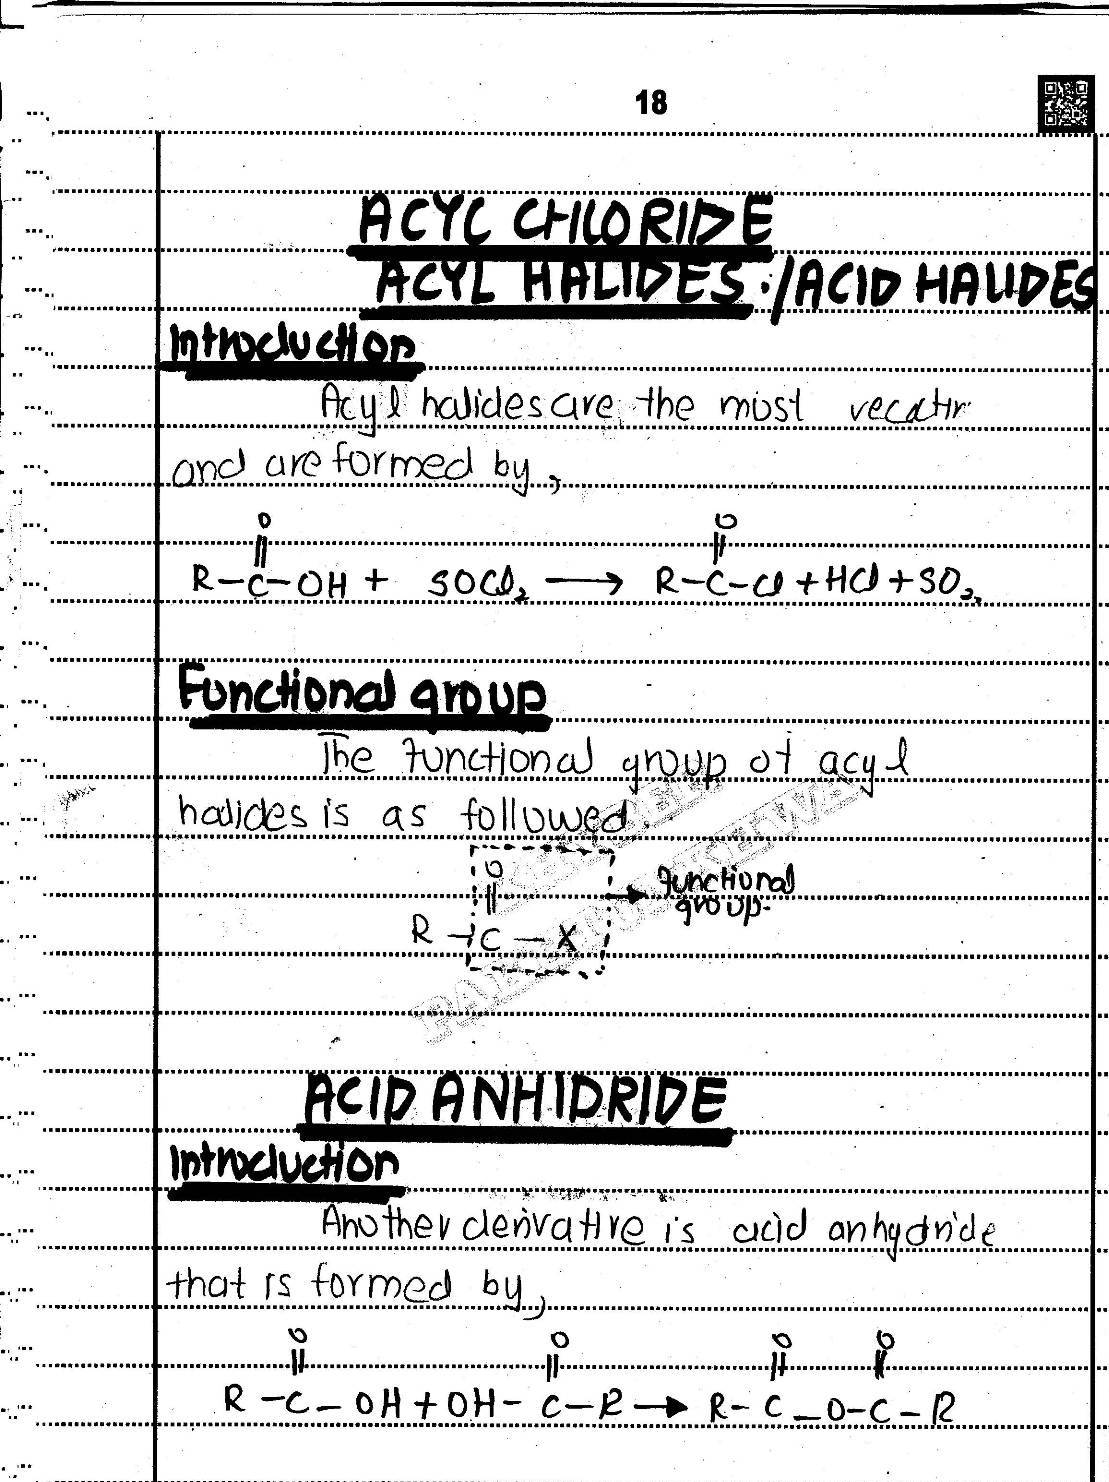 18
ACYL CHLORIDE
ACYL HALIDES ./ACID HALIDES
Introduction
Acyl halides are the most
and are formed by,
O O
|| ||
R-C-OH + SOCl₂ → R-C-Cl + HCl + SO₂,
Functional group
The functional group of acyl
halides is as followed.
O
||
R-C-X
functional
group.
ACID ANHIDRIDE
Introduction
Another derivative is acid anhydride
that is formed by,
O O O O
|| || || ||
R-C-OH + OH-C-R → R-C-O-C-R